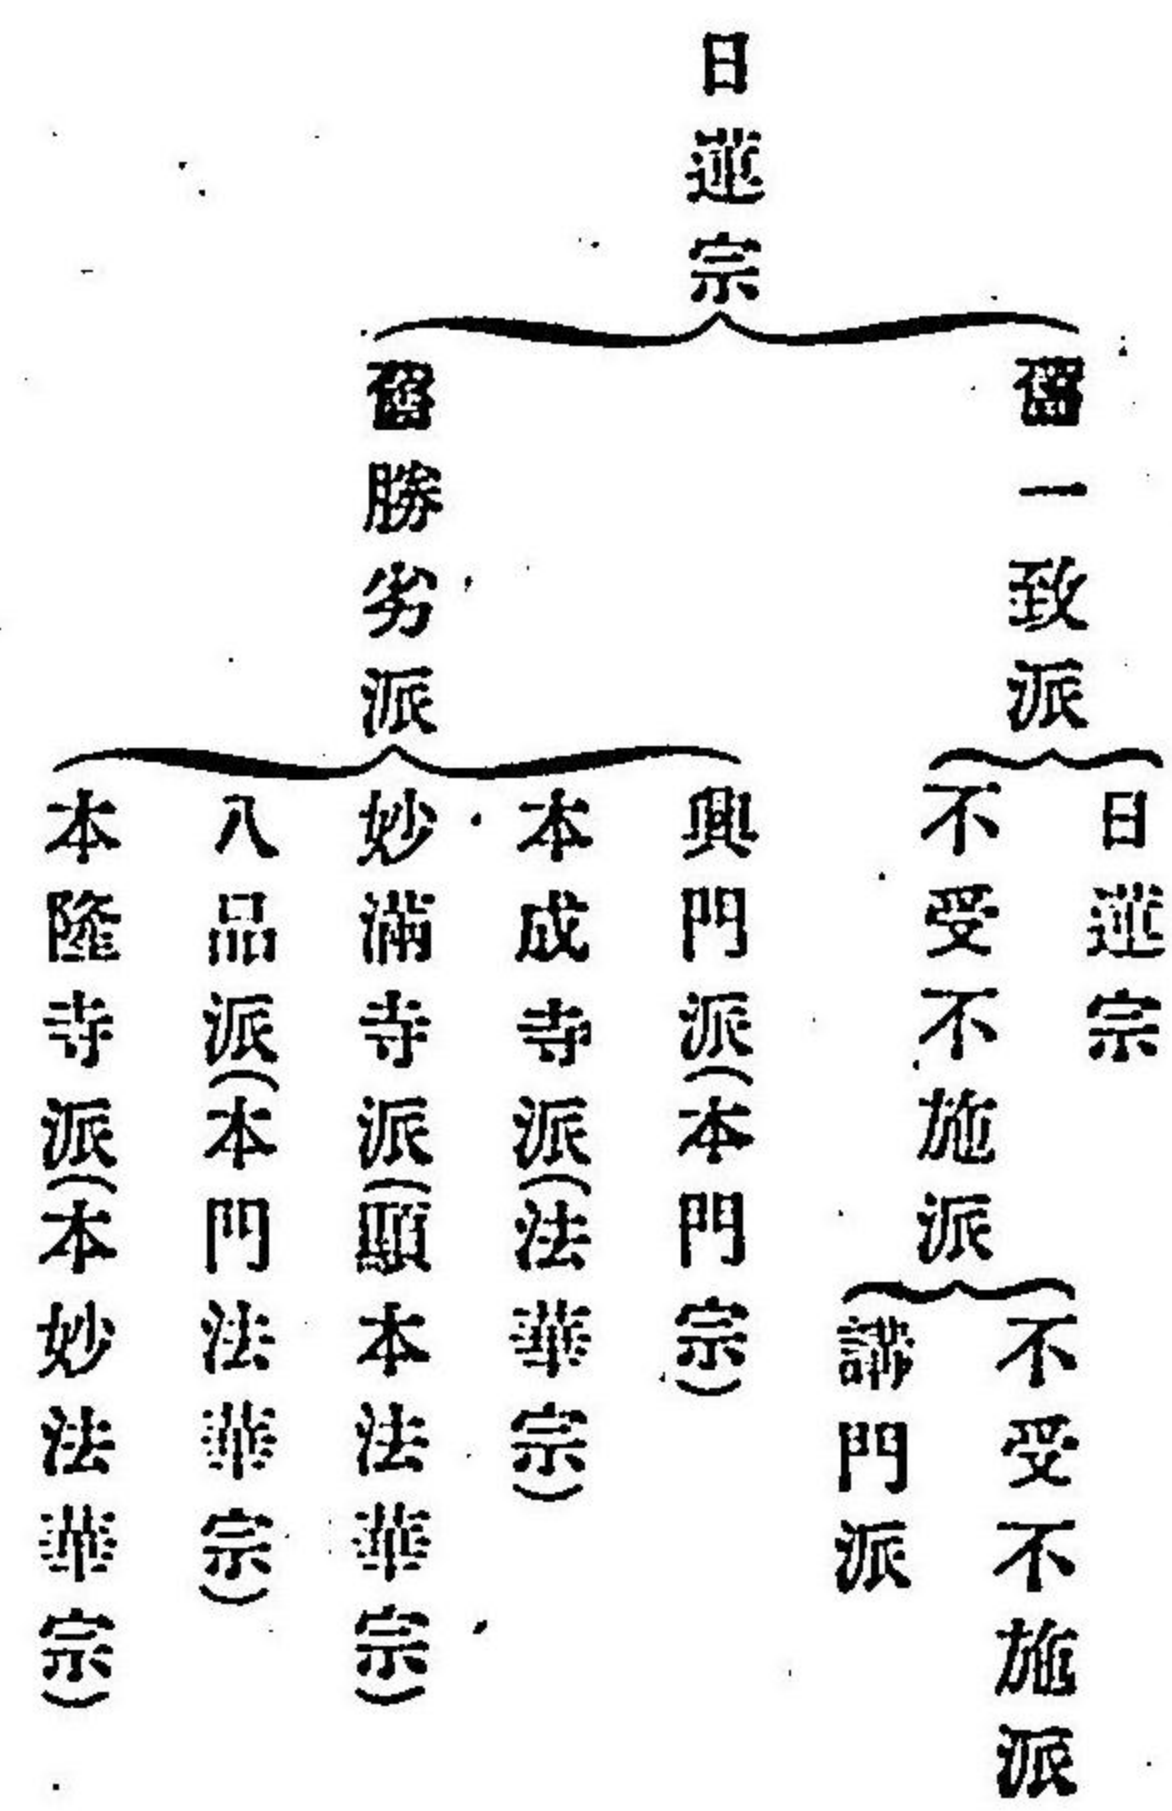 日蓮宗
舊一致派
日蓮宗
不受不施派
不受不施派
講門派
舊勝劣派
興門派(本門宗)
本成寺派(法華宗)
妙滿寺派(顯本法華宗)
八品派(本門法華宗)
本隆寺派(本妙法華宗)